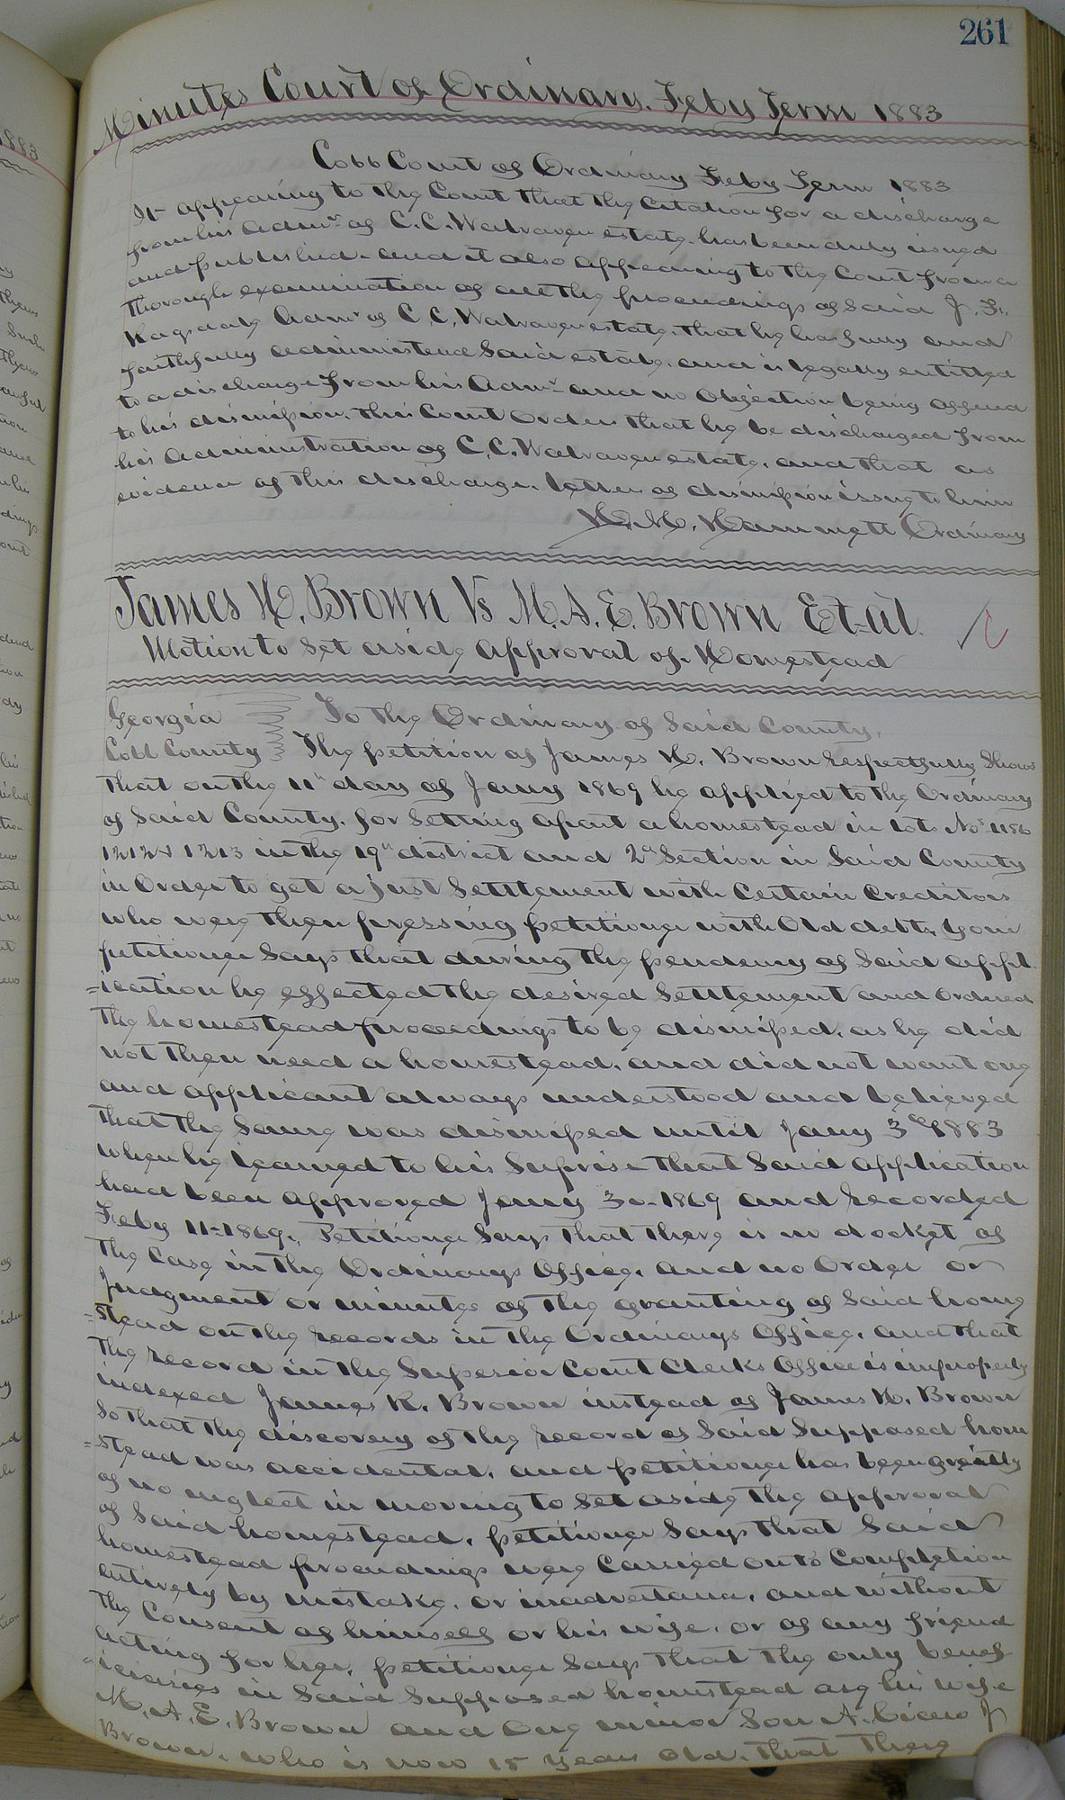 261
Minutes Court of Ordinary. Feby Term 1883
Cobb Court of Ordinary Feby Term 1883
It appearing to the Court that the citation for a discharge
from his Admr. of C. C. Walraven estate. has been duly issued
and published. and it also appearing to the Court from a
thorough examination of all the proceedings of said J. F.
Ragsdale Admr of C. C. Walraven estate. that he has fully and
faithfully administered said estate. and is legally entitled
to a discharge from his Admr. and no objection being offered
to his dismission. this Court Orders that he be discharged from
his Administration of C. C. Walraven estate. and that as
evidence of this discharge. letters of dismission issue to him
H. M. Hammett Ordinary
James H. Brown Vs M. A. E. Brown Et-al.
Motion to Set aside approval of Homestead
Georgia To the Ordinary of Said County,
Cobb County The petition of James H. Brown respectfully Shows
that on the 11th day of Jany 1869 he applied to the Ordinary
of Said County. for Setting apart a homestead in lots Nos. 1156
1212 & 1213 in the 19th district and 2d Section in Said County
in Order to get a just Settlement with Certain Creditors
who were then pressing petitioner with Old debts, your
petitioner Says that during the pendency of Said appl
=ication he effected the desired Settlement and ordered
the homestead proceedings to be dismissed. as he did
not then need a homestead. and did not want one
and applicant always understood and believed
that the Same was dismissed until Jany 3rd 1883
when he learned to his Suprise that Said application
had been approved Jany 30-1869 and recorded
Feby 11-1869. Petitioner Says that there is no docket of
the Case in the Ordinarys Office. and no Order or
Judgment or minutes of the granting of Said home
=stead on the records in the Ordinarys Office. and that
the record in the Superior Court Clerks Office is improperly
indexed James R. Brown instead of James H. Brown
So that the discovery of the record of Said Supposed home
=stead was accidental. and petitioner has been greatly
of no neglect in moving to Set aside the approval
of Said homestead. petitioner Says that Said
homestead proceedings were Carried on to Completion
entirely by mistake. or inadvertance. and without
the Consent of himself or his wife. or of any friend
acting for her. petitioner Says that the only benef
=iciaries in Said Supposed homestead are his wife
M. A. E. Brown and One minor Son A. J
Brown. who is now 15 Years Old. that there